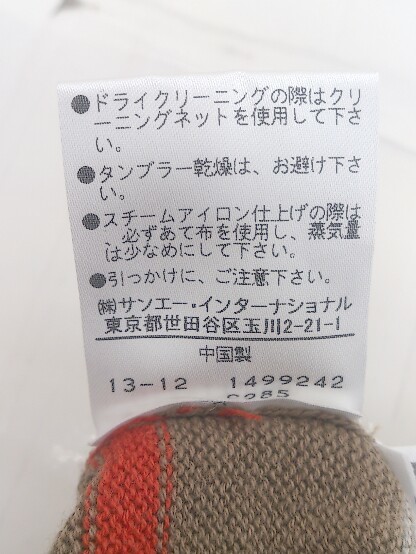 ●ドライクリーニングの際はクリ
ーニングネットを使用して下さ
い。
●タンブラー乾燥は、お避け下さ
い。
●スチームアイロン仕上げの際は
必ずあて布を使用し、蒸気量
は少なめにして下さい。
●引っかけに、ご注意下さい。
㈱サンエー・インターナショナル
東京都世田谷区玉川2-21-1
中国製
13-12 1499242